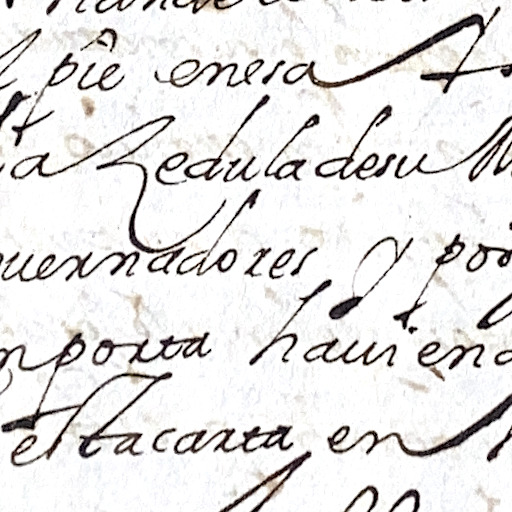 piê enesa
la Zedula desu
uernadores y por
mporta hauiend
estacarta en